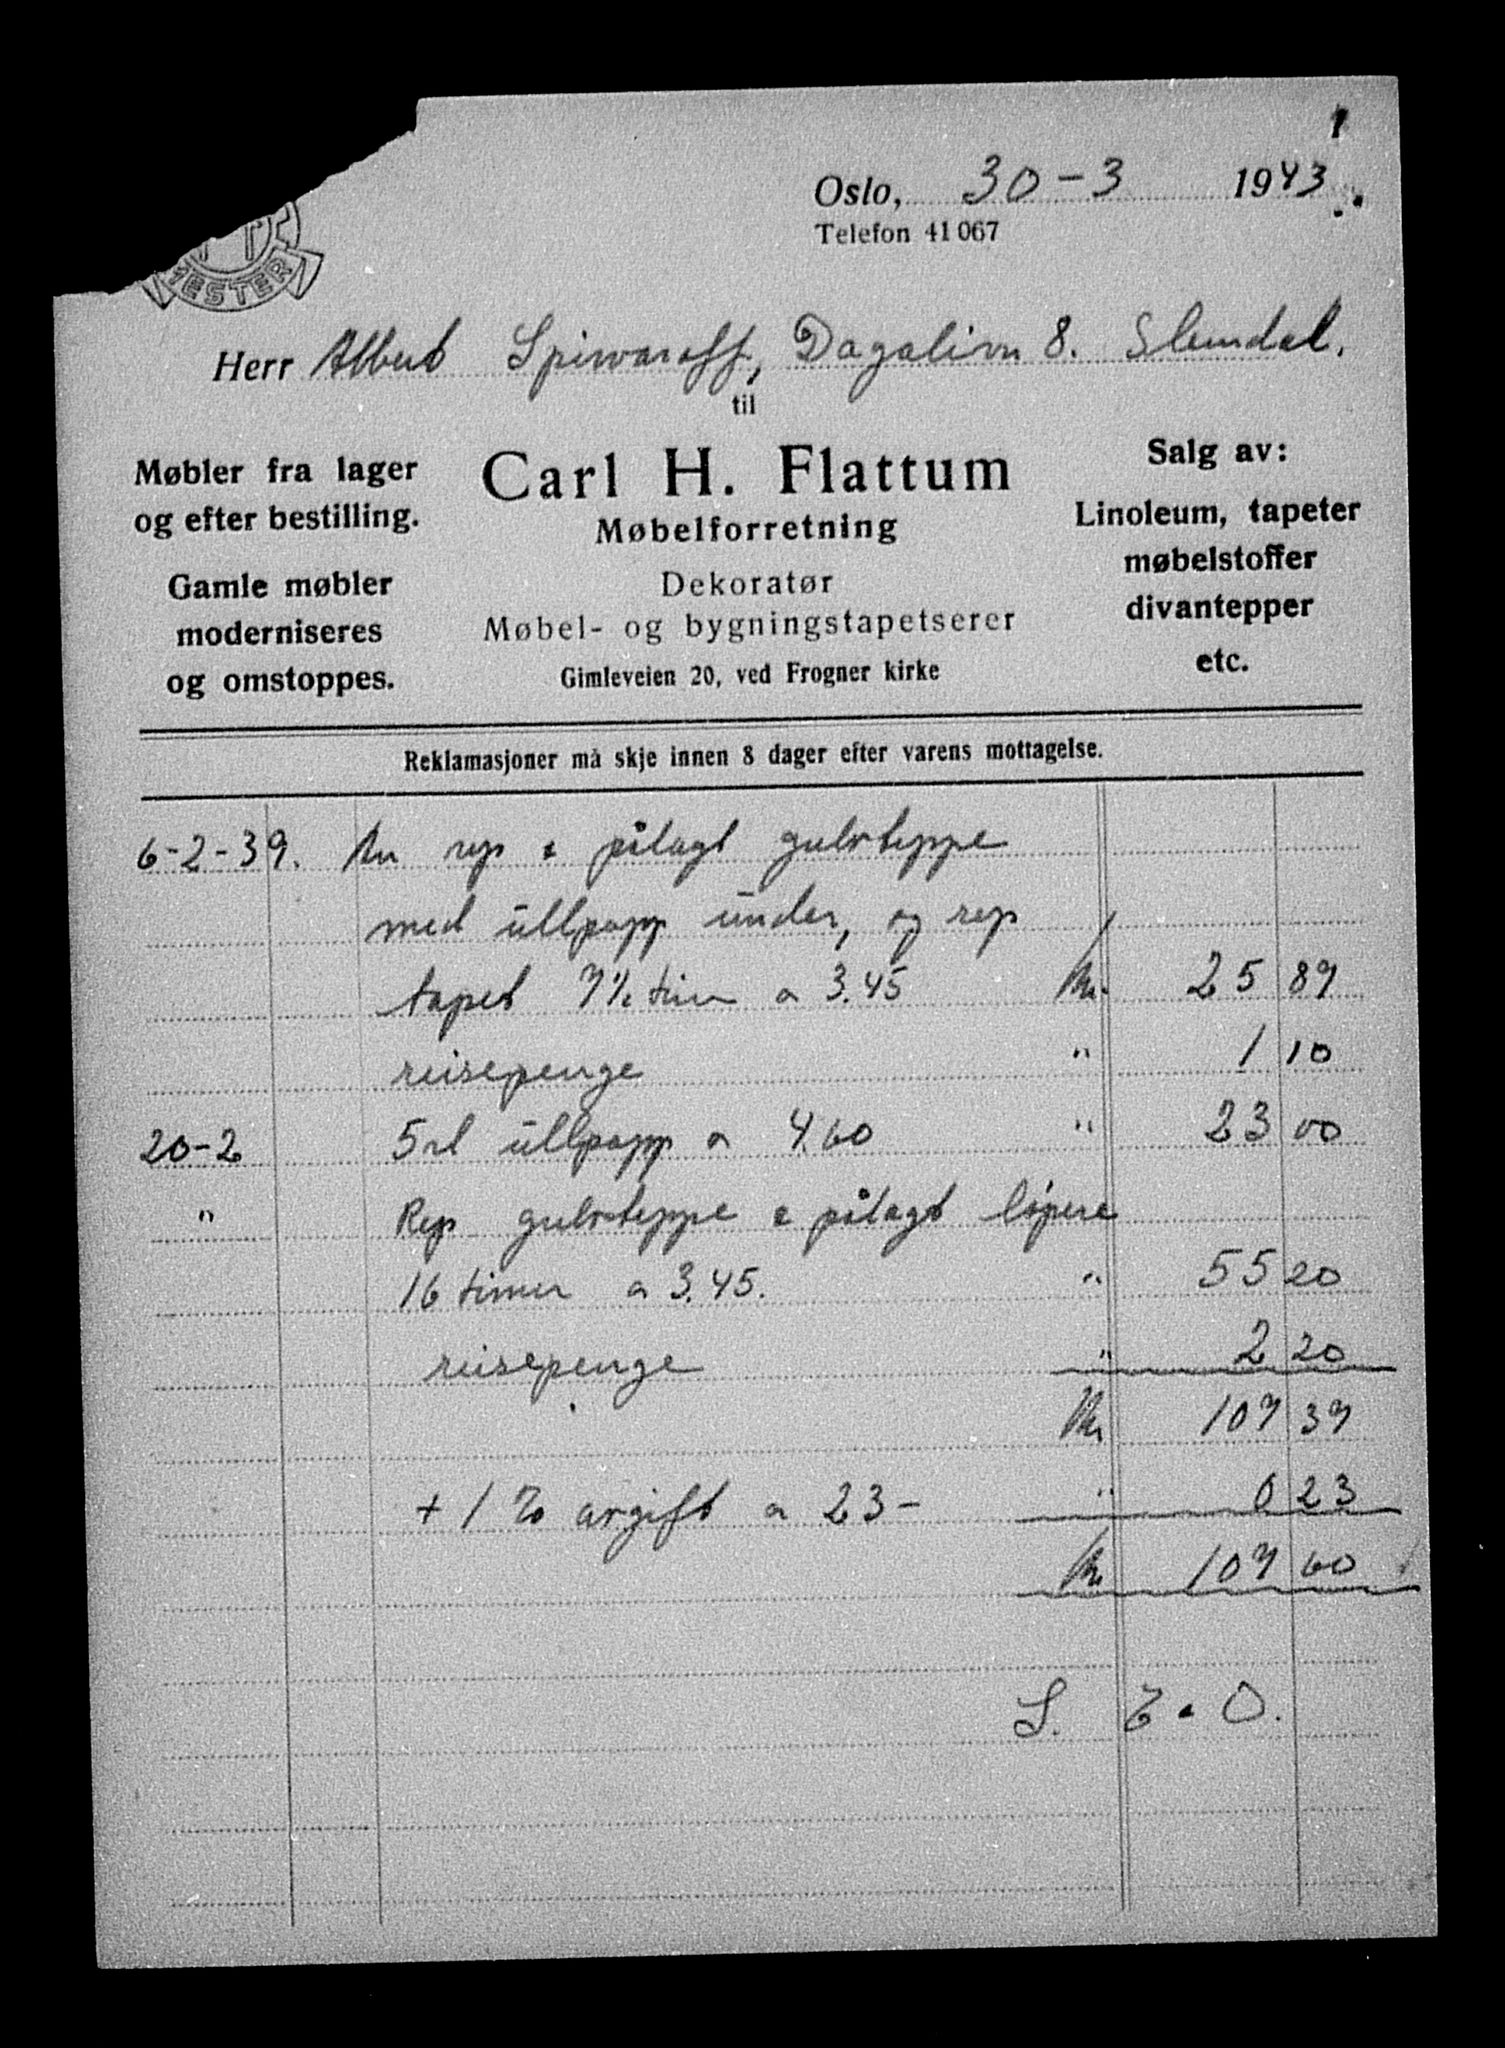 MESTER
Oslo, 30-3 1943
Telefon 41 067
Herr Albert Spirvaroff, Dagalivn 8. Slemdal.
til
Carl H. Flattum
Møbelforretning
Dekoratør
Møbel- og bygningstapetserer
Gimleveien 20, ved Frogner kirke
Møbler fra lager
og efter bestilling.
Gamle møbler
moderniseres
og omstoppes.
Salg av:
Linoleum, tapeter
møbelstoffer
divantepper
etc.
Reklamasjoner må skje innen 8 dager efter varens mottagelse.
6-2-39. An rep & pålagt gulvteppe
med ullpapp under, og rep
tapet 7½ timer a 3.45 Kr. 25 87
reisepenge " 1 10
20-2 5 rl ullpapp a 4.60 " 23 00
" Rep gulvteppe & pålagt løpere
16 timer a 3.45. " 55 20
reisepenge " 2 20
Kr 107 37
+ 1 % avgift a 23- " 0 23
Kr 107 60
S. E. & O.